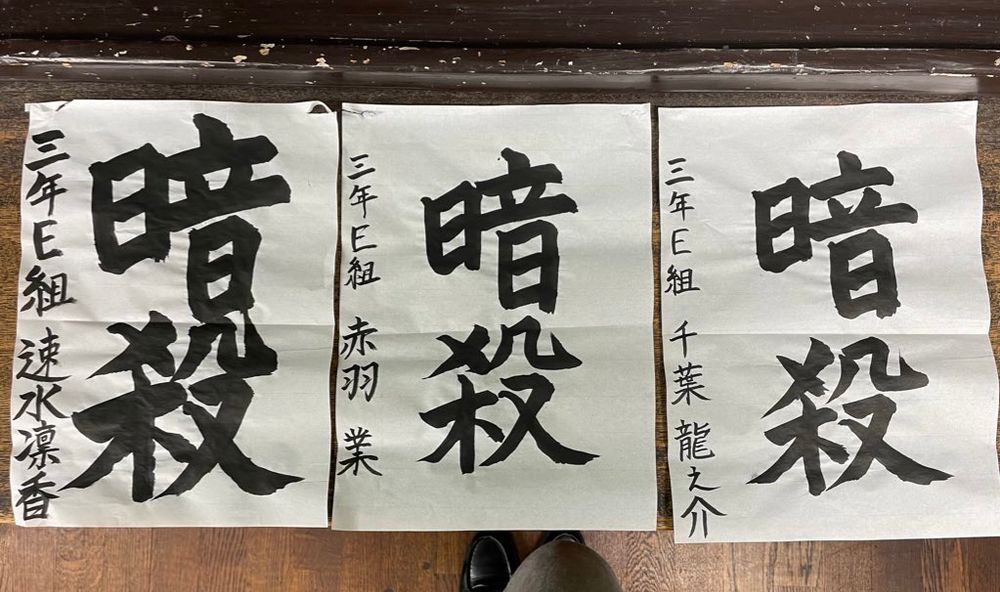 暗殺
三年E組 速水凛香
暗殺
三年E組 赤羽 業
暗殺
三年E組 千葉 龍之介